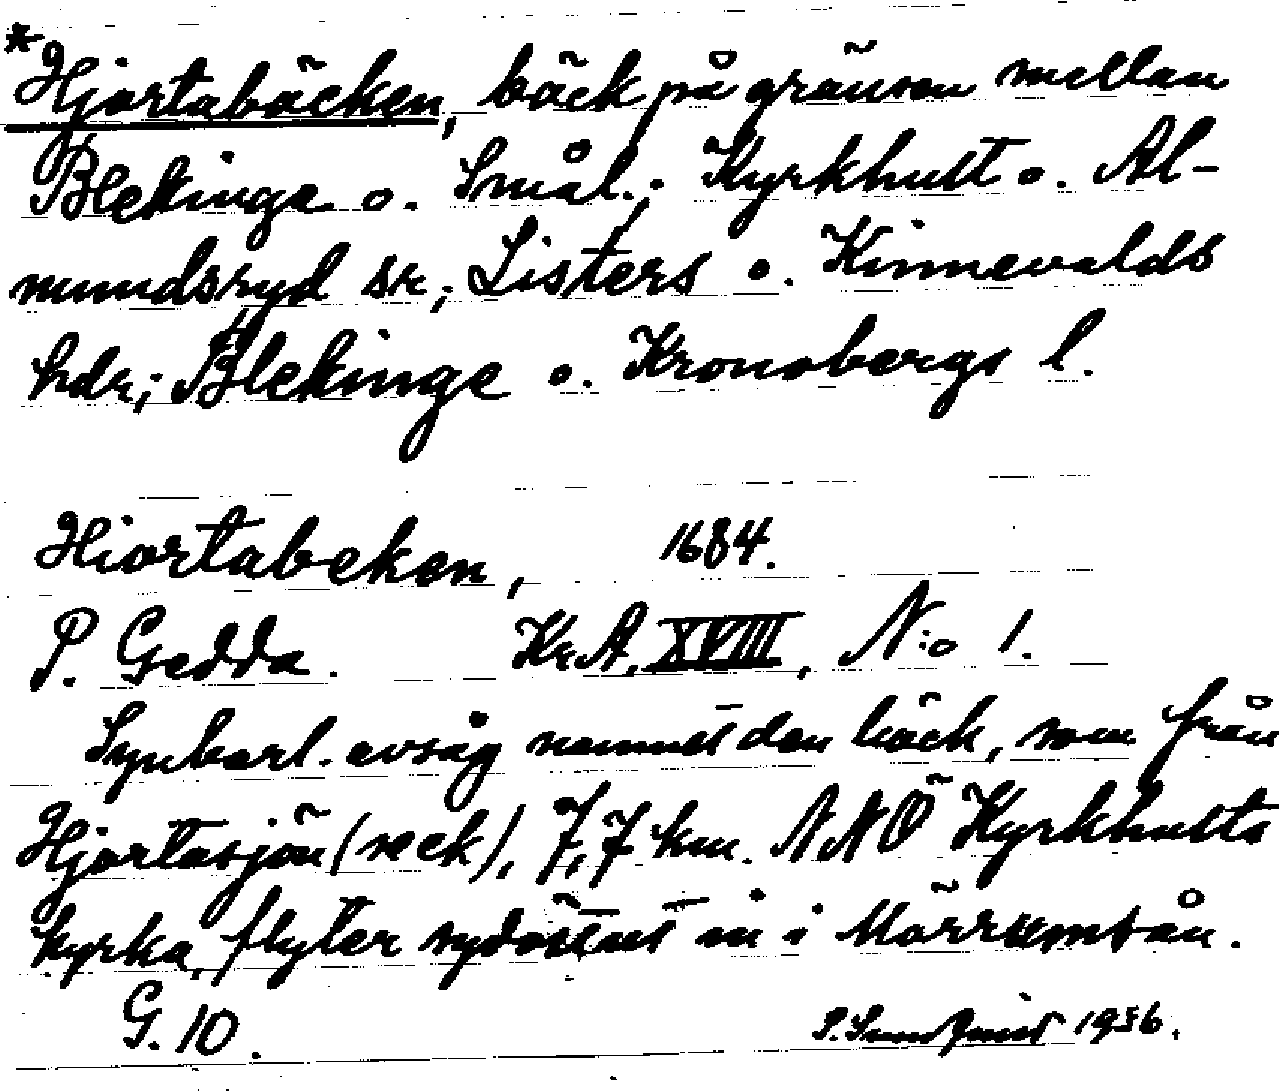 *Hjortabäcken, bäck på gränsen mellan
Blekinge o. Smål.; Kyrkhult o. Al-
mundsryd sr; Listers o. Kinnevalds
hdr; Blekinge o. Kronobergs l.
Hiortabeken, 1684.
P. Gedda. KrA, XVIII, N:o 1.
Synbarl. avsåg namnet den bäck, som från
Hjortasjön (se ek), 7,7 km. NNÖ Kyrkhults
kyrka, flyter sydösteut in i Mörrumsån.
G. 10. S. Sundqvist 1936.